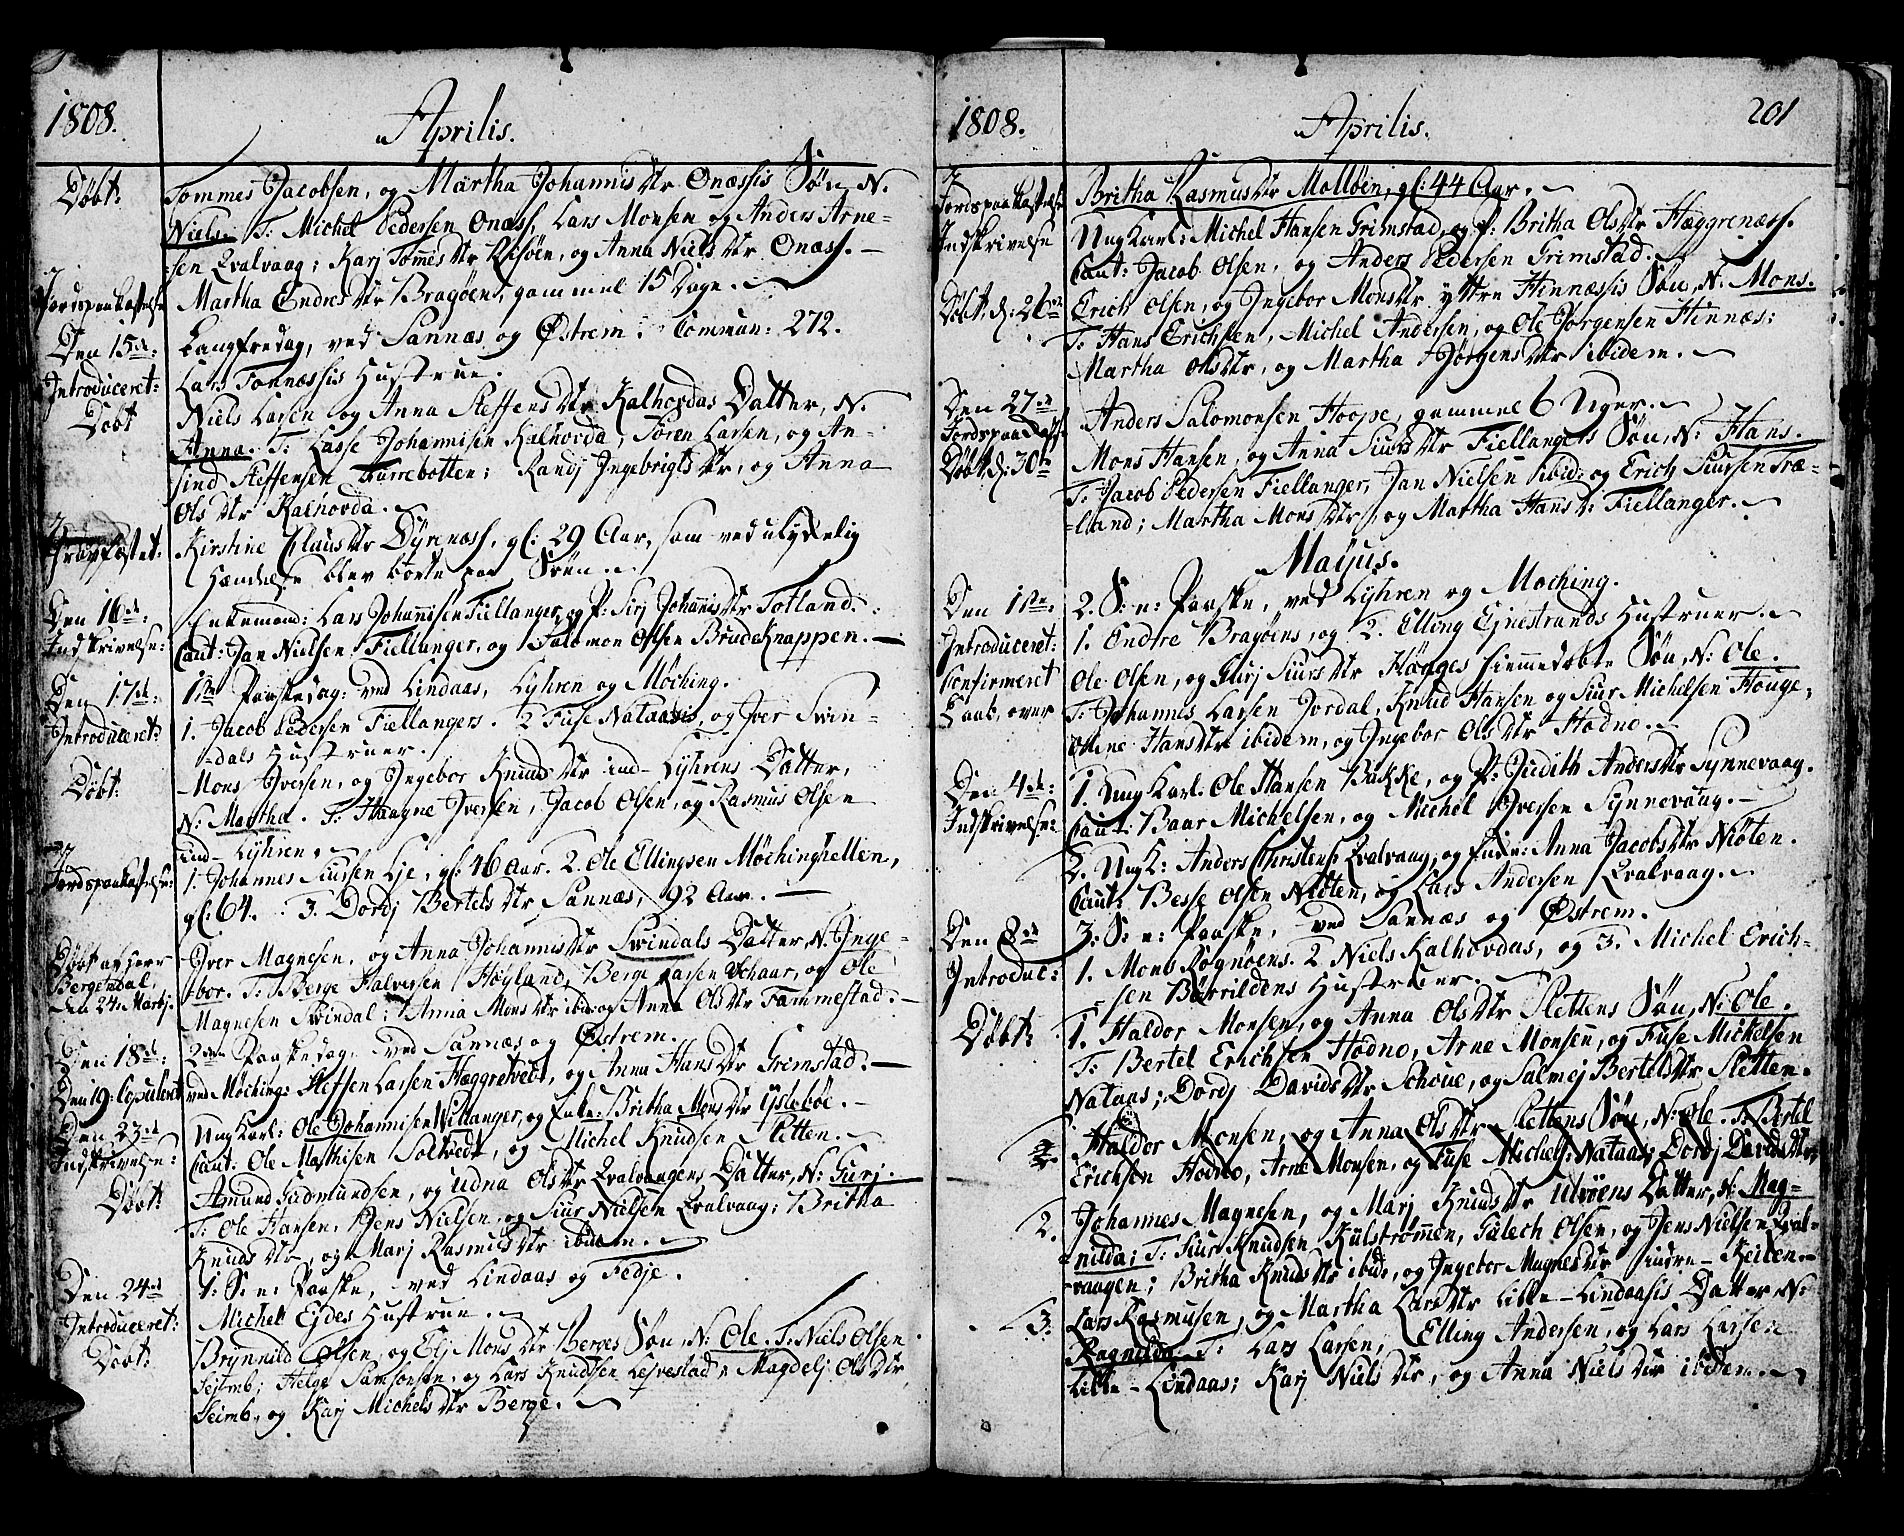 1808.
Aprilis.
Døbt:
Tommes Jacobsen, og Martha Johannisdtr Onæssis Søn, N.
Niels. T: Michel Pedersen Onæss, Lars Monsen og Anders Arne-
-sen Qvalvaag; Karj Tom̅esdtr Risøen, og Anna Nielsdtr Onæss. —
Jordspaakastelse
Martha Endresdtr Bragøen, gammel 15 Dage.
Den 15de:
Langfredag, ved Sannæs og Østrem: Commun: 272.
Introduceret:
Lars Tonnæssis Hustrue.
Døbt
Niels Larsen og Anna Steffensdtr Kalhovdas Datter, N.
Anna. T: Lasse Johannisen Kalhovda, Søren Larsen, og An-
sind Steffensen Burrebotten; Randj Ingebrigtsdtr, og Anna
Olsdtr Kalhovda.
Gravfæstet:
Kirstine Clausdtr Dyrenæss, gl: 29 Aar, som ved ulykkelig
Hændelse blev borte paa Søen.
Den 16de:
Enkemand: Lars Johannisen Fiellanger, og P: Sirj Johannisdtr Totland.
Indskrivelse:
Caut: Jan Nielsen Fiellanger, og Salomon Olsen Brudeknappen. —
Den 17de:
1ste Paaskedag: ved Lindaas, Lyhren og Møching.
Introduceret:
1. Jacob Pedersen Fiellangers. 2 Fuse Nataasis, og Iver Svin-
-dals Hustruer.
Døbt:
Mons Iversen, og Ingebor Knudsdtr ind-Lyhrens Datter,
N: Martha. T: Haagne Iversen, Jacob Olsen, og Rasmus Olsen
ind-Lyhren.
Jordspaakastelse:
1. Johannes Siursen Lje, gl: 46 Aar. 2. Ole Ellingsen Møchinghellen,
gl: 64. 3. Dordj Bertelsdtr Sannæs, 92 Aar. —
Døbt af Herr
Bergendal,
den 24. Martj.
Iver Magnesen, og Anna Johannisdtr Svindals Datter, N: Inge-
-bor. T: Berge Halvorsen Høyland, Berge Larsen Schaar, og Ole
Magnesen Svindal; Anna Monsdtr ibid: og Anna Olsdtr Fammestad. —
Den 18de
2den Paaskedag, ved Sannæs og Østrem.
Den 19. Copuleret
ved Møching: Steffen Larsen Hæggretvedt, og Anna Hansdtr Grimstad. —
Den 23de
Ung Karl: Ole Johannisen Villanger, og Enke: Britha Monsdtr Yslebøe. —
Indskrivelse:
Caut: Ole Mathisen Soltvedt, og Michel Knudsen Sletten.
Døbt:
Amund Gudmundsen, og Udna Olsdtr Qvalvaagens Datter, N: Gurj.
T: Ole Hansen, Jens Nielsen, og Siur Nielsen Qvalvaag; Britha
Knudsdtr, og Marj Rasmusdtr ibidem.
Den 24de
1. S: e: Paaske, ved Lindaas og Fedje.
Introduceret:
Michel Ejdes Hustrue.
Døbt:
Brynnild Olsen, og Elj Monsdtr Berges Søn, N: Ole. T: Niels Olsen
Sejmb; Helge Samsonsen, og Lars Knudsen Lejrestad; Magdelj Olsdtr
Seimb, og Karj Michelsdtr Berge.
1808.
Aprilis.
201
Jordspaakastelse
Britha Rasmusdtr Molløen, gl: 44 Aar.
Indskrivelse
Ung Karl: Michel Hansen Grimstad, og P: Britha Olsdtr Hæggrenæss.
Caut: Jacob Olsen, og Anders Pedersen Grimstad.
Døbt, d: 26de
Erich Olsen, og Ingebor Monsdtr yttre Hinnæssis Søn, N: Mons.
T: Hans Erichsen, Michel Andersen, og Ole Jørgensen Hinnæs;
Martha Olsdtr, og Martha Jørgensdtr ibidem.
Den 27de
Jordspaakast:
Anders Salomonsen Hoope, gammel 6 Uger.
Døbt, d: 30te
Mons Hansen, og Anna Siursdtr Fiellangers Søn, N: Hans.
T: Jacob Pedersen Fiellanger, Jan Nielsen ibid: og Erich Siursen Træ-
-land; Martha Monsdtr, og Martha Hansdtr Fiellanger.
Maijus.
Den 1ste
2. S: e: Paaske, ved Lyhren og Møching.
Introduceret:
1. Endre Bragøens, og 2. Elling Ejnestrands Hustruer.
Confirmeret
Daab, over
Ole Olsen, og Gurj Siursdtr Houges hiemmedøbte Søn, N: Ole.
T: Johannes Larsen Jordal, Knud Hansen og Siur Michelsen Houge;
Oline Hansdtr ibidem, og Ingebor Olsdtr Hodno.
Den 4de:
1. Ung Karl. Ole Hansen Bakke, og P: Judith Andersdtr Synnevaag.
Indskrivelse:
Caut: Baar Michelsen, og Michel Iversen Synnevaag. —
2. Ung K: Anders Christens: Qvalvaag, og Enke: Anna Jacobsdtr Nióten.
Caut: Besse Olsen Nióten, og Lars Andersen Qvalvaag.
Den 8de
3: S: e: Paaske, ved Sannæs og Østrem.
Introduc:
1. Mons Rognøens. 2 Niels Kalhovdas, og 3. Michel Erich-
-sen Børrildens Hustruer.
Døbt:
1. Haldor Monsen, og Anna Olsdtr Slettens Søn, N: Ole.
T: Bertel Erichsen Hodno, Arne Monsen, og Fuse Michelsen
Nataas; Dordj Davidsdtr Schoue, og Salmej Bertelsdtr Sletten.
2. Haldor Monsen, og Anna Olsdtr Slettens Søn, N: Ole. T: Bertel
Erichsen Hodno, Arne Monsen, og Fuse Michels: Nataas; Dordj Davidsdtr
2. Johannes Magnesen, og Marj Knudsdtr Ulvøens Datter, N: Mag-
-nilda; T: Siur Knudsen Kulstrømen, Gulech Olsen, og Jens Nielsen Qval-
vaagen; Britha Knudsdtr ibid: og Ingebor Magnesdtr indre-Keilen.
3. Lars Rasmusen, og Martha Larsdtr Lille-Lindaasis Datter, N:
Ragnilda. T: Lars Larsen, Elling Andersen, og Lars Larsen
Lille-Lindaas; Karj Nielsdtr, og Anna Nielsdtr ibidem.